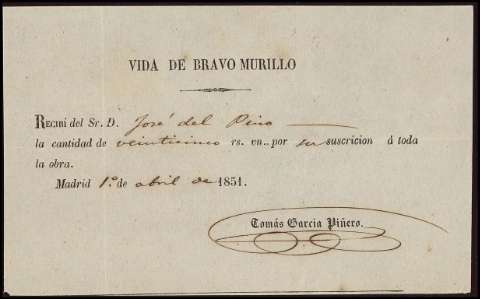 VIDA DE BRAVO MURILLO
RECIBI del Sr. D. José del Pino
la cantidad de veinticinco rs. vn.. por su suscricion á toda
la obra.
Madrid 1.º de abril de 1851.
Tomás Garcia Piñero.